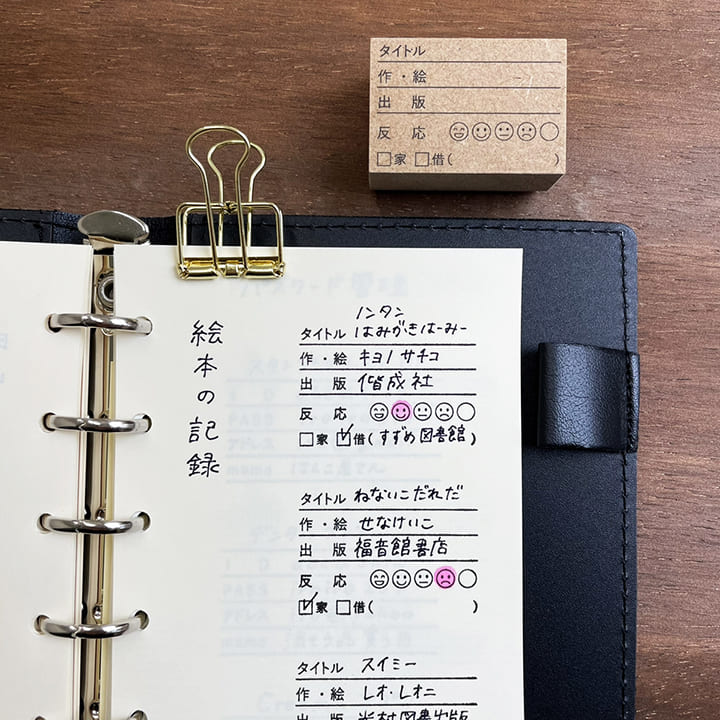 タイトル
作・絵
出 版
反 応
□家 □借( )
絵本の記録
ノンタン
タイトル はみがきはーみー
作・絵 キヨノサチコ
出 版 偕成社
反 応
□家 ☑借(すずめ図書館)
タイトル ねないこだれだ
作・絵 せなけいこ
出 版 福音館書店
反 応
☑家 □借( )
タイトル スイミー
作・絵 レオ・レオニ